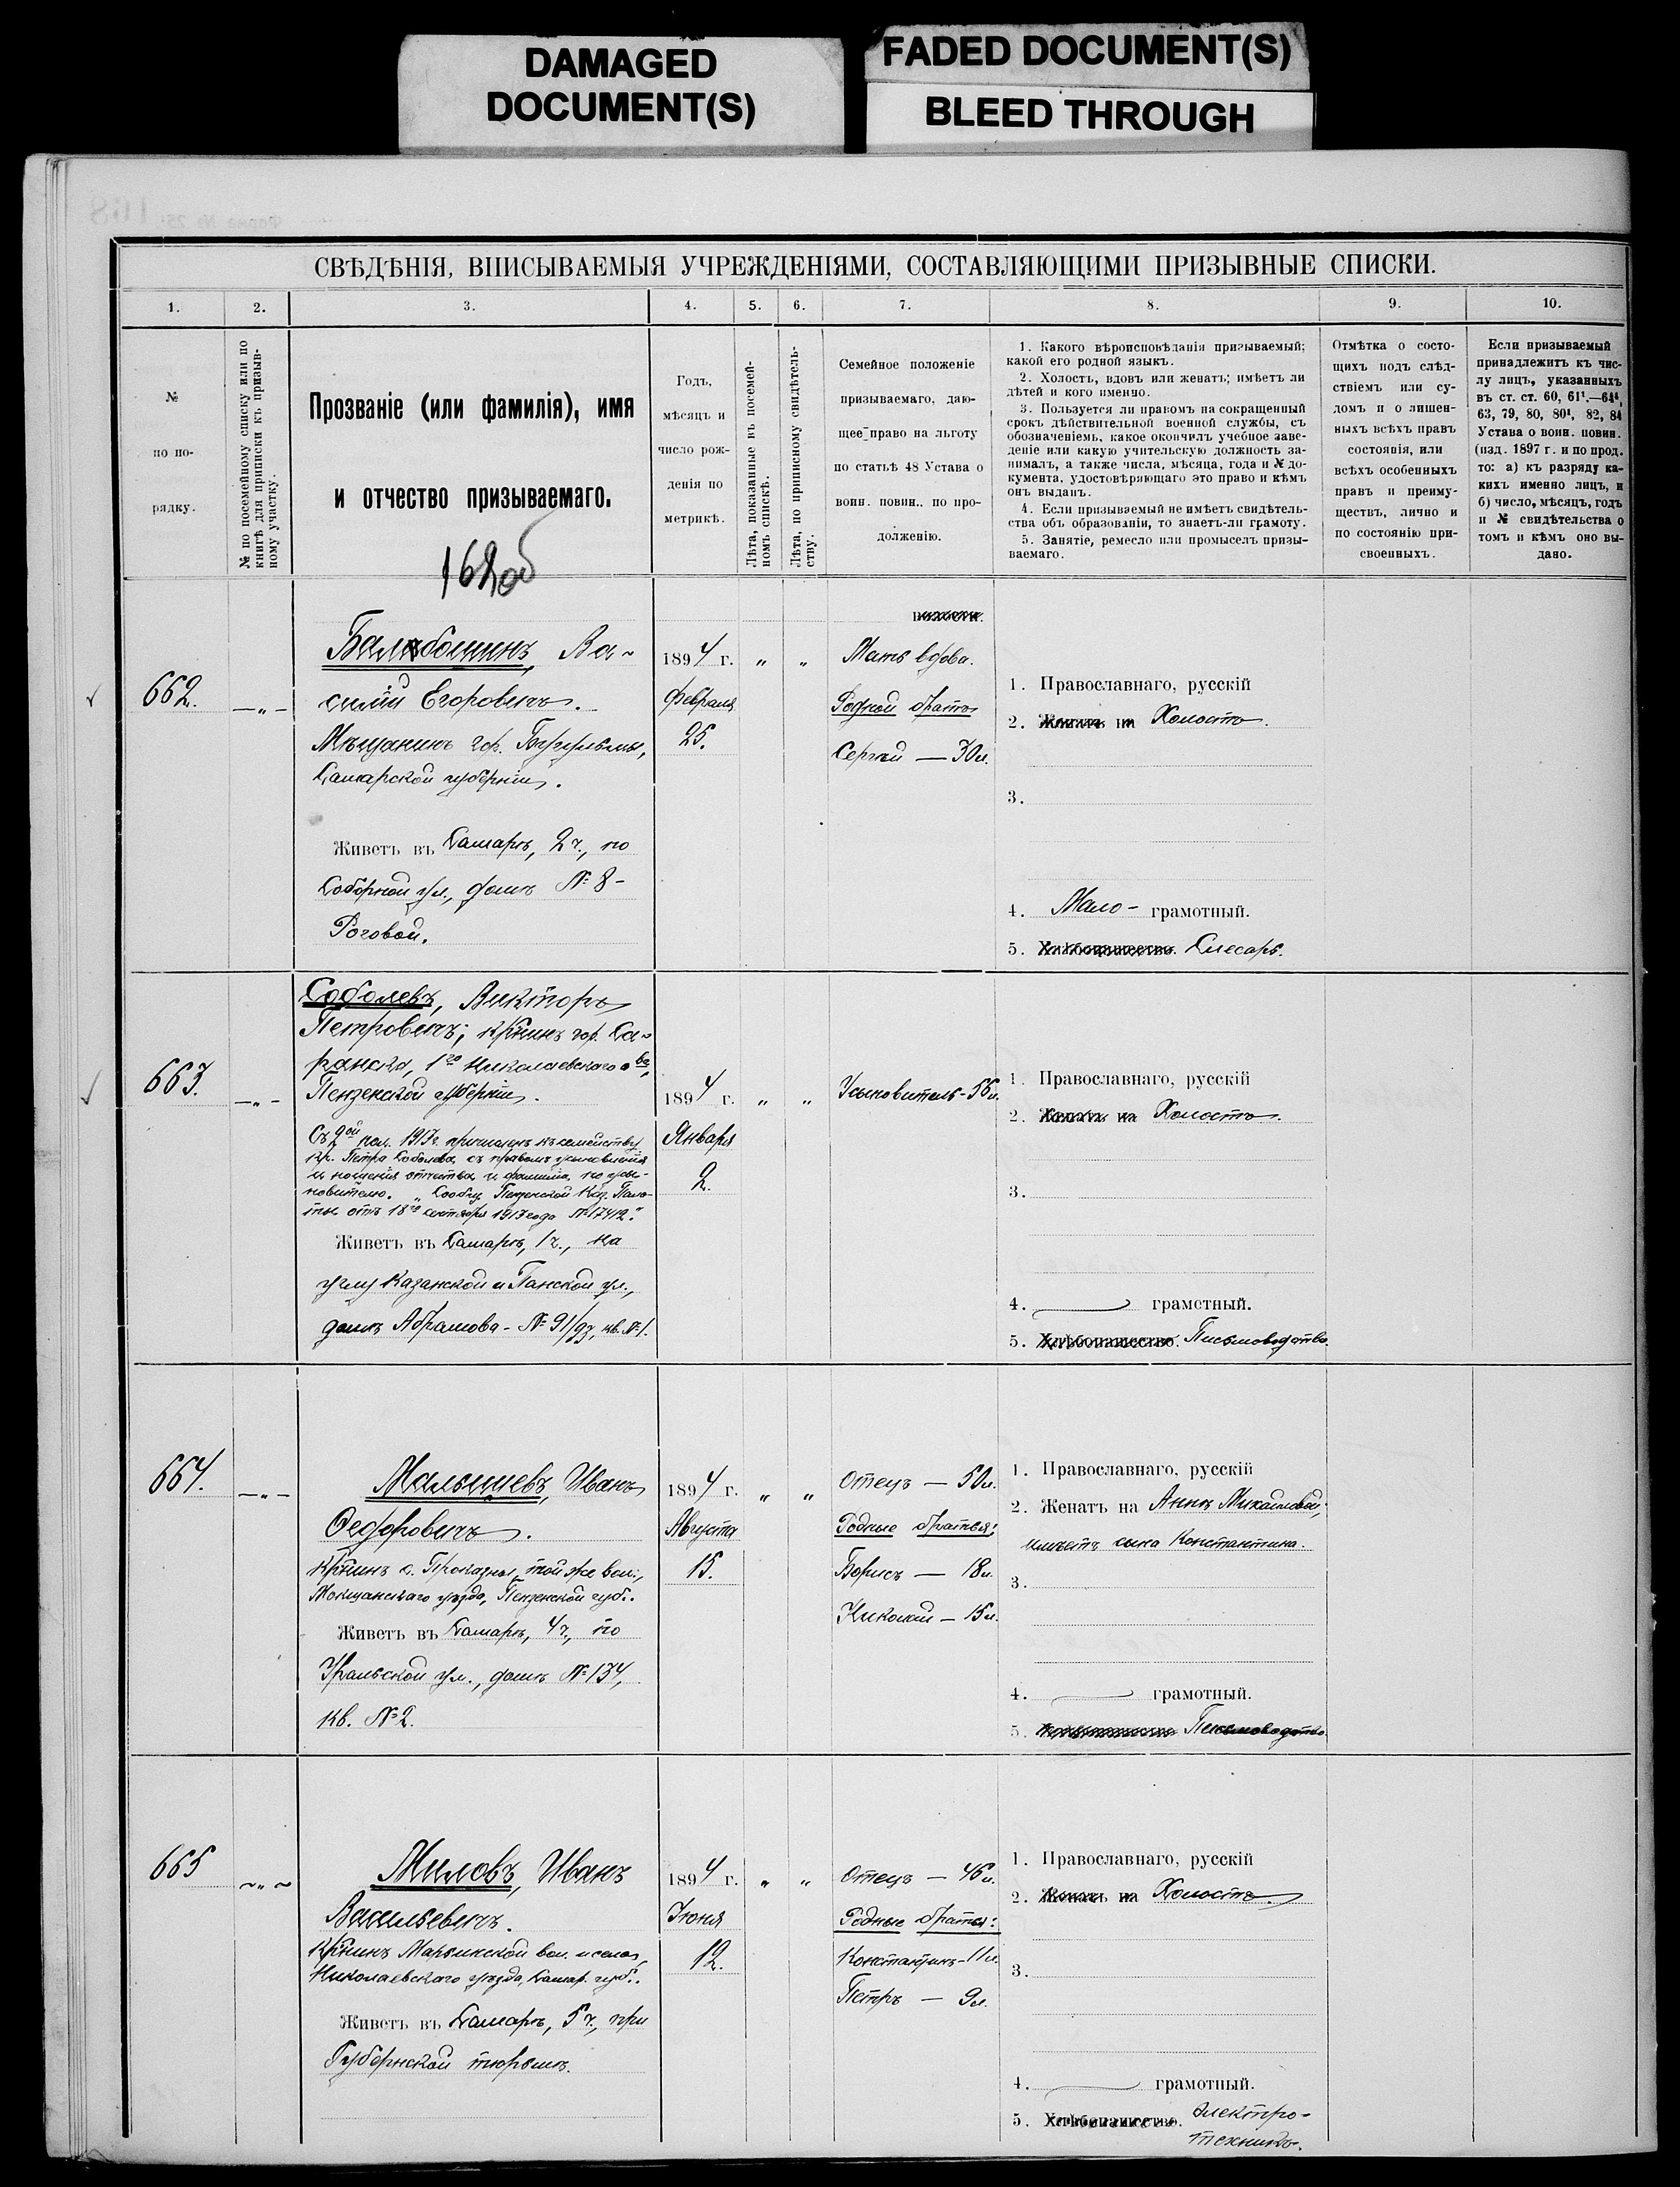 DAMAGED
DOCUMENT(S)
FADED DOCUMENT(S)
BLEED THROUGH
СВѢДѢНІЯ, ВПИСЫВАЕМЫЯ УЧРЕЖДЕНІЯМИ, СОСТАВЛЯЮЩИМИ ПРИЗЫВНЫЕ СПИСКИ.
1. 2. 3. 4. 5. 6. 7. 8. 9. 10.
№
по по-
рядку.
№ по посемейному списку или по
книгѣ для приписки къ призыв-
ному участку.
Прозваніе (или фамилія), имя
и отчество призываемаго.
162об
Годъ,
мѣсяцъ и
число рож-
денія по
метрикѣ.
Лѣта, показанные въ посемей-
номъ спискѣ.
Лѣта, по приписному свидѣтель-
ству.
Семейное положеніе
призываемаго, даю-
щее право на льготу
по статьѣ 48 Устава о
воин. повин., по про-
долженію.
1. Какого вѣроисповѣданія призываемый;
какой его родной языкъ.
2. Холостъ, вдовъ или женатъ; имѣетъ ли
дѣтей и кого именно.
3. Пользуется ли правомъ на сокращенный
срокъ дѣйствительной военной службы, съ
обозначеніемъ, какое окончилъ учебное заве-
деніе или какую учительскую должность за-
нималъ, а также числа, мѣсяца, года и № до-
кумента, удостовѣряющаго это право и кѣмъ
онъ выданъ.
4. Если призываемый не имѣетъ свидѣтель-
ства объ образованіи, то знаетъ-ли грамоту.
5. Занятіе, ремесло или промыселъ призы-
ваемаго.
Отмѣтка о состо-
щихъ подъ слѣд-
ствіемъ или су-
домъ и о лишен-
ныхъ всѣхъ правъ
состоянія, или
всѣхъ особенныхъ
правъ и преиму-
ществъ, лично и
по состоянію при-
своенныхъ.
Если призываемый
принадлежитъ къ чис-
лу лицъ, указанныхъ
въ ст. ст. 60, 61¹.—64⁴,
63, 79, 80, 80¹, 82, 84
Устава о воин. повин.
(изд. 1897 г. и по прод.
то: а) къ разряду ка-
кихъ именно лицъ, и
б) число, мѣсяцъ, годъ
и № свидѣтельства о
томъ и кѣмъ оно вы-
дано.
662. — „ —
Балабошинъ, Ва-
силій Егоровичъ.
Мѣщанинъ гор. Бугульмы,
Самарской губерніи.
Живетъ въ Самарѣ, 2 ч., по
Соборной ул., домъ № 8 -
Роговой.
1894 г. „ „
Февраля
25.
волости.
Мать вдова.
Родной братъ
Сергѣй — 30 л.
1. Православнаго, русскій
2. Женатъ на Холостъ.
3.
4. Мало- грамотный.
5. Хлѣбопашество. Слесарь.
663. — „ —
Соболевъ, Викторъ
Петровичъ; кр̃нинъ гор. Са-
ранска, 1го Николаевскаго о-ва,
Пензенской губерніи.
Съ 2ой пол. 1913 г. причисленъ къ семейству
кр. Петра Соболева, съ правомъ усыновленія
и ношенія отчества и фамиліи по усы-
новителю. „Сообщ. Пензенской Каз. Пала-
ты отъ 18го сентября 1913 года № 17412."
Живетъ въ Самарѣ, 1 ч., на
углу Казанской и Панской ул.,
домъ Абрамова - № 91/93, кв. № 1.
1894 г. „ „
Января
2.
Усыновитель - 56 л.
1. Православнаго, русскій
2. Женатъ на Холостъ.
3.
4. грамотный.
5. Хлѣбопашество. Письмоводство.
664. — „ —
Малышевъ, Иванъ
Ѳедоровичъ.
Кр̃нинъ с. Проказны, той же вол.,
Мокшанскаго уѣзда, Пензенской губ.
Живетъ въ Самарѣ, 4 ч., по
Уральской ул., домъ № 134,
кв. № 2.
1894 г. „ „
Августа
15.
Отецъ — 50 л.
Родные братья:
Борисъ — 18 л.
Николай — 15 л.
1. Православнаго, русскій
2. Женатъ на Аннѣ Михайловой,
имѣетъ сына Константина.
3.
4. грамотный.
5. Хлѣбопашество. Письмоводство.
665 ~ „ ~
Миловъ, Иванъ
Васильевичъ.
Кр̃нинъ Марьинской вол. и села,
Николаевскаго уѣзда, Самар. губ.
Живетъ въ Самарѣ, 5 ч., при
Губернской тюрьмѣ.
1894 г. „ „
Іюня
12.
Отецъ — 46 л.
Родные братья:
Константинъ - 11 л.
Петръ — 9 л.
1. Православнаго, русскій
2. Женатъ на Холостъ.
3.
4. грамотный.
5. Хлѣбопашество. Электро-
техникъ.